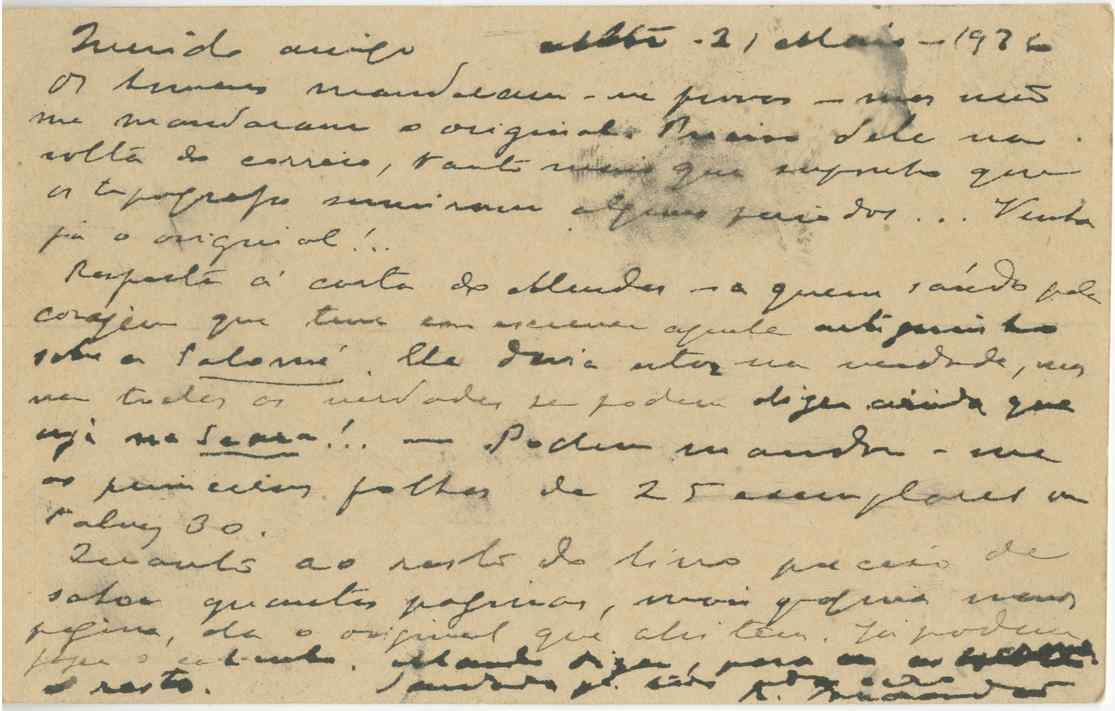 Querido amigo - 21 Maio - 192
Os homens mandaram-me provas - mas não
me mandaram o original. Preciso dele na
volta do correio, tanto mais que suponho que
os typografos sumiram alguns periodos... Venha
já o original!..
Resposta á carta do Mendes - a quem saúdo pela
coragem que teve em escrever aquele artiguinho
sobre a Salomé. Ele devia estar na verdade, mas
nem todas as verdades se podem dizer ainda que
seja na Seara!.. — Podem mandar-me
as primeiras folhas de 25 exemplares ou
talvez 30.
Quanto ao resto do livro preciso de
saber quantas paginas, mais pagina menos
pagina, dá o original que ahi tem. Já podem
fazer o calculo. Mande dizer, para eu
o resto. R. Brandão